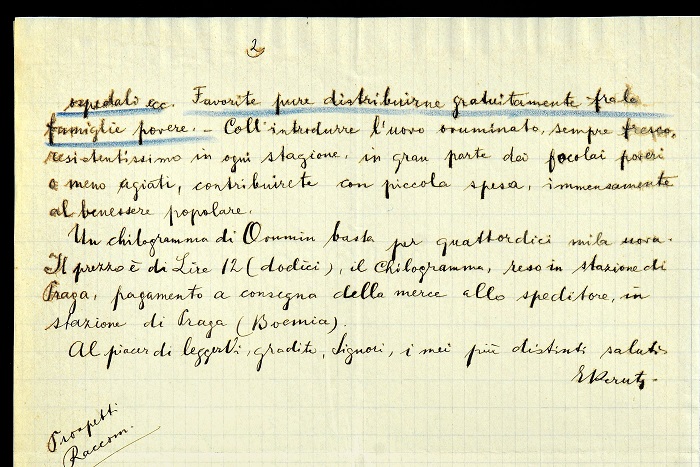 2
ospedali ecc. Favorite pure distribuirne gratuitamente fra le
famiglie povere. – Coll'introdurre l'uovo ovuminato, sempre fresco,
resistentissimo in ogni stagione, in gran parte dei focolai poveri
o meno agiati, contribuirete con piccola spesa, immensamente
al benessere popolare.
Un chilogramma di Ovumin basta per quattordici mila uova.
Il prezzo è di Lire 12 (dodici), il chilogramma, reso in stazione di
Praga, pagamento a consegna della merce allo speditore, in
stazione di Praga (Boemia).
Al piacer di leggerVi, gradite, Signori, i miei più distinti saluti
E Perutz.
Prospetti
Raccom.